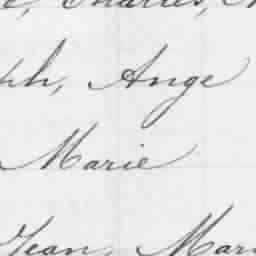 Charles,
Ange
Marie
Jean, Mari